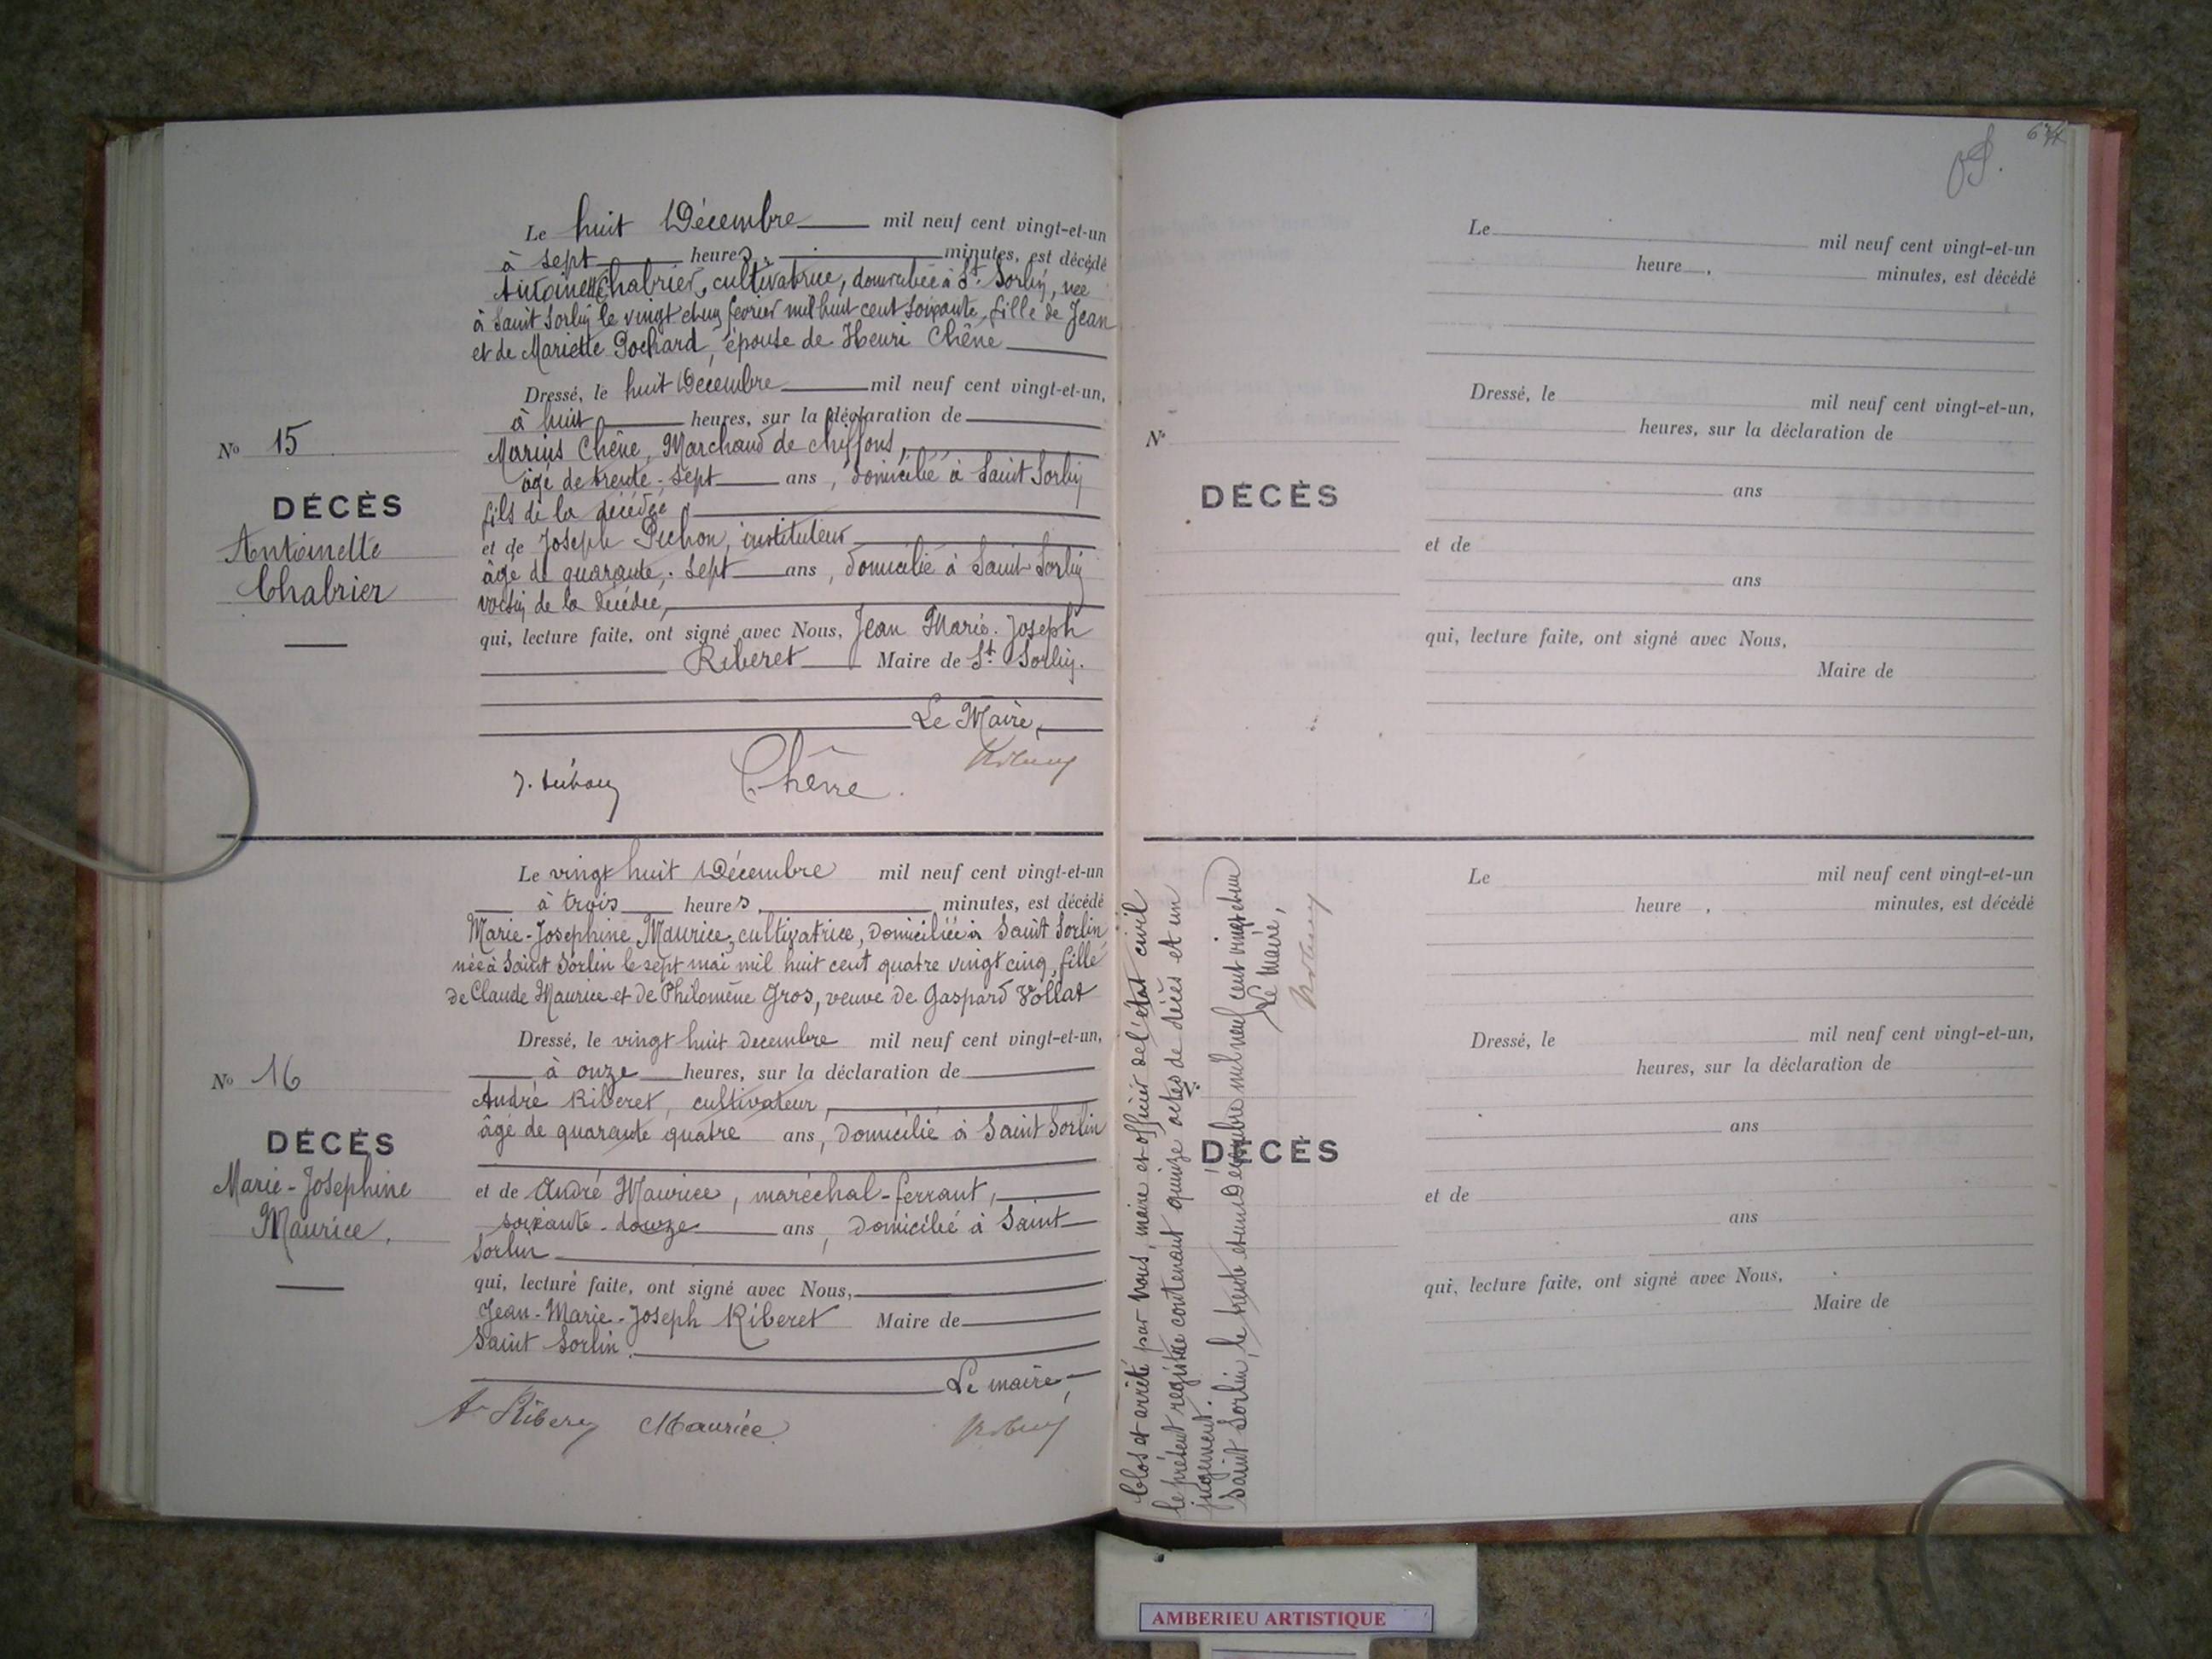 Le huit Décembre mil neuf cent vingt-et-un
à sept heures, minutes, est décédé
Antoinette Chabrier, cultivatrice, domiciliée à St. Sorlin, née
à Saint Sorlin le vingt cinq février mil huit cent soixante, fille de Jean
et de Mariette Pochard, épouse de Henri Chêne
Dressé, le huit Décembre mil neuf cent vingt-et-un,
à huit heures, sur la déclaration de
Marius Chêne, Marchand de chiffons,
âgé de trente-sept ans, domicilié à Saint Sorlin
fils de la décédée
et de Joseph Pichon, instituteur
âgé de quarante-sept ans, domicilié à Saint Sorlin
voisin de la décédée,
qui, lecture faite, ont signé avec Nous, Jean Marie-Joseph
Riberet Maire de St. Sorlin.
Le Maire,
Chêne.
No 15
DÉCÈS
Antoinette
Chabrier
Le vingt huit Décembre mil neuf cent vingt-et-un
à trois heures, minutes, est décédé
Marie-Josephine Maurice, cultivatrice, domiciliée à Saint Sorlin
née à Saint Sorlin le sept mai mil huit cent quatre vingt cinq, fille
de Claude Maurice et de Philomène Gros, veuve de Gaspard Vollat
Dressé, le vingt huit decembre mil neuf cent vingt-et-un,
à onze heures, sur la déclaration de
André Riberet, cultivateur,
âgé de quarante quatre ans, domicilié à Saint Sorlin
et de André Maurice, maréchal-ferrant,
soixante-douze ans, domicilié à Saint
Sorlin
qui, lecture faite, ont signé avec Nous,
Jean-Marie-Joseph Riberet Maire de
Saint Sorlin.
Le maire,
A Ribery Maurice
No 16
DÉCÈS
Marie-Josephine
Maurice.
Clos et arrêté par nous, maire et officier de l'état civil
le présent registre contenant quinze actes de décès et un
jugement.
Saint Sorlin, le trente et un Décembre mil neuf cent vingt et un
Le Maire,
Le mil neuf cent vingt-et-un
heure , minutes, est décédé
Dressé, le mil neuf cent vingt-et-un,
heures, sur la déclaration de
ans
et de
ans
qui, lecture faite, ont signé avec Nous,
Maire de
No
DÉCÈS
Le mil neuf cent vingt-et-un
heure , minutes, est décédé
Dressé, le mil neuf cent vingt-et-un,
heures, sur la déclaration de
ans
et de
ans
qui, lecture faite, ont signé avec Nous,
Maire de
DÉCÈS
AMBERIEU ARTISTIQUE